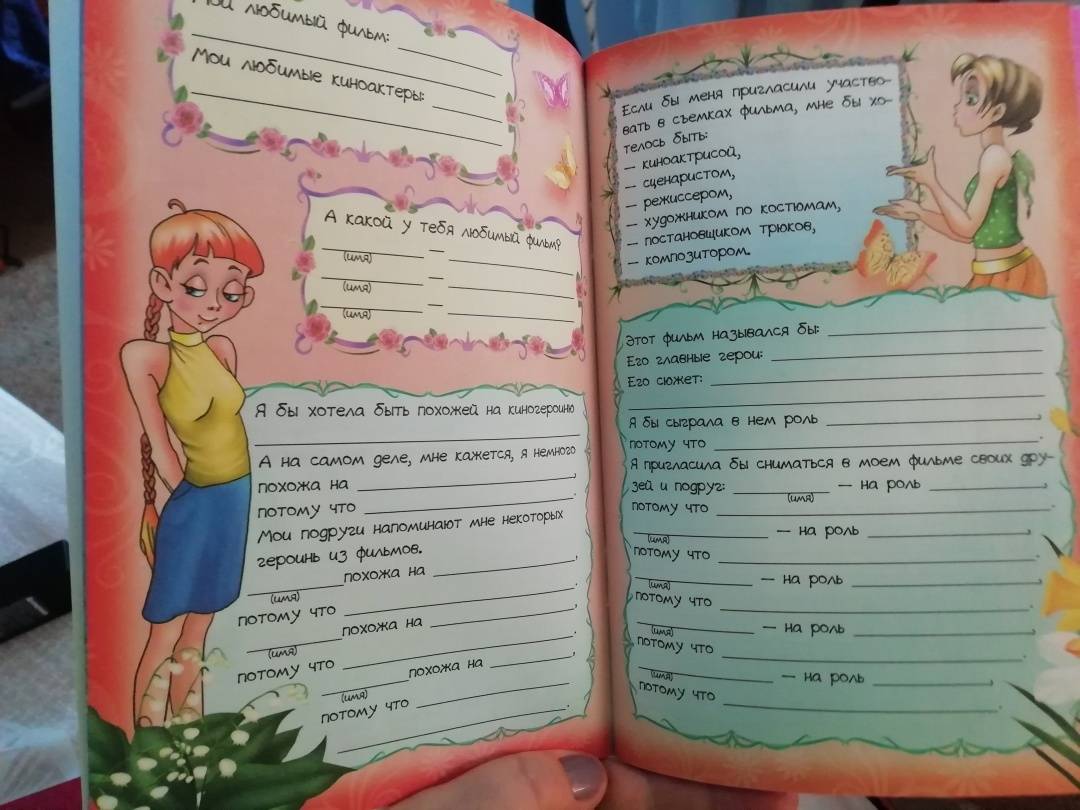 Мой любимый фильм:
Мои любимые киноактеры:
А какой у тебя любимый фильм?
—
(имя)
—
(имя)
—
(имя)
Я бы хотела быть похожей на киногероиню
А на самом деле, мне кажется, я немного
похожа на ,
потому что .
Мои подруги напоминают мне некоторых
героинь из фильмов.
похожа на ,
(имя)
потому что .
похожа на ,
(имя)
потому что .
похожа на ,
(имя)
потому что
.
Если бы меня пригласили участво-
вать в съемках фильма, мне бы хо-
телось быть:
— киноактрисой,
— сценаристом,
— режиссером,
— художником по костюмам,
— постановщиком трюков,
— композитором.
Этот фильм назывался бы:
Его главные герои:
Его сюжет:
.
Я бы сыграла в нем роль ,
потому что .
Я пригласила бы сниматься в моем фильме своих дру-
зей и подруг: — на роль ,
(имя)
потому что .
— на роль ,
(имя)
потому что .
— на роль ,
(имя)
потому что .
— на роль ,
(имя)
потому что .
— на роль ,
(имя)
потому что .